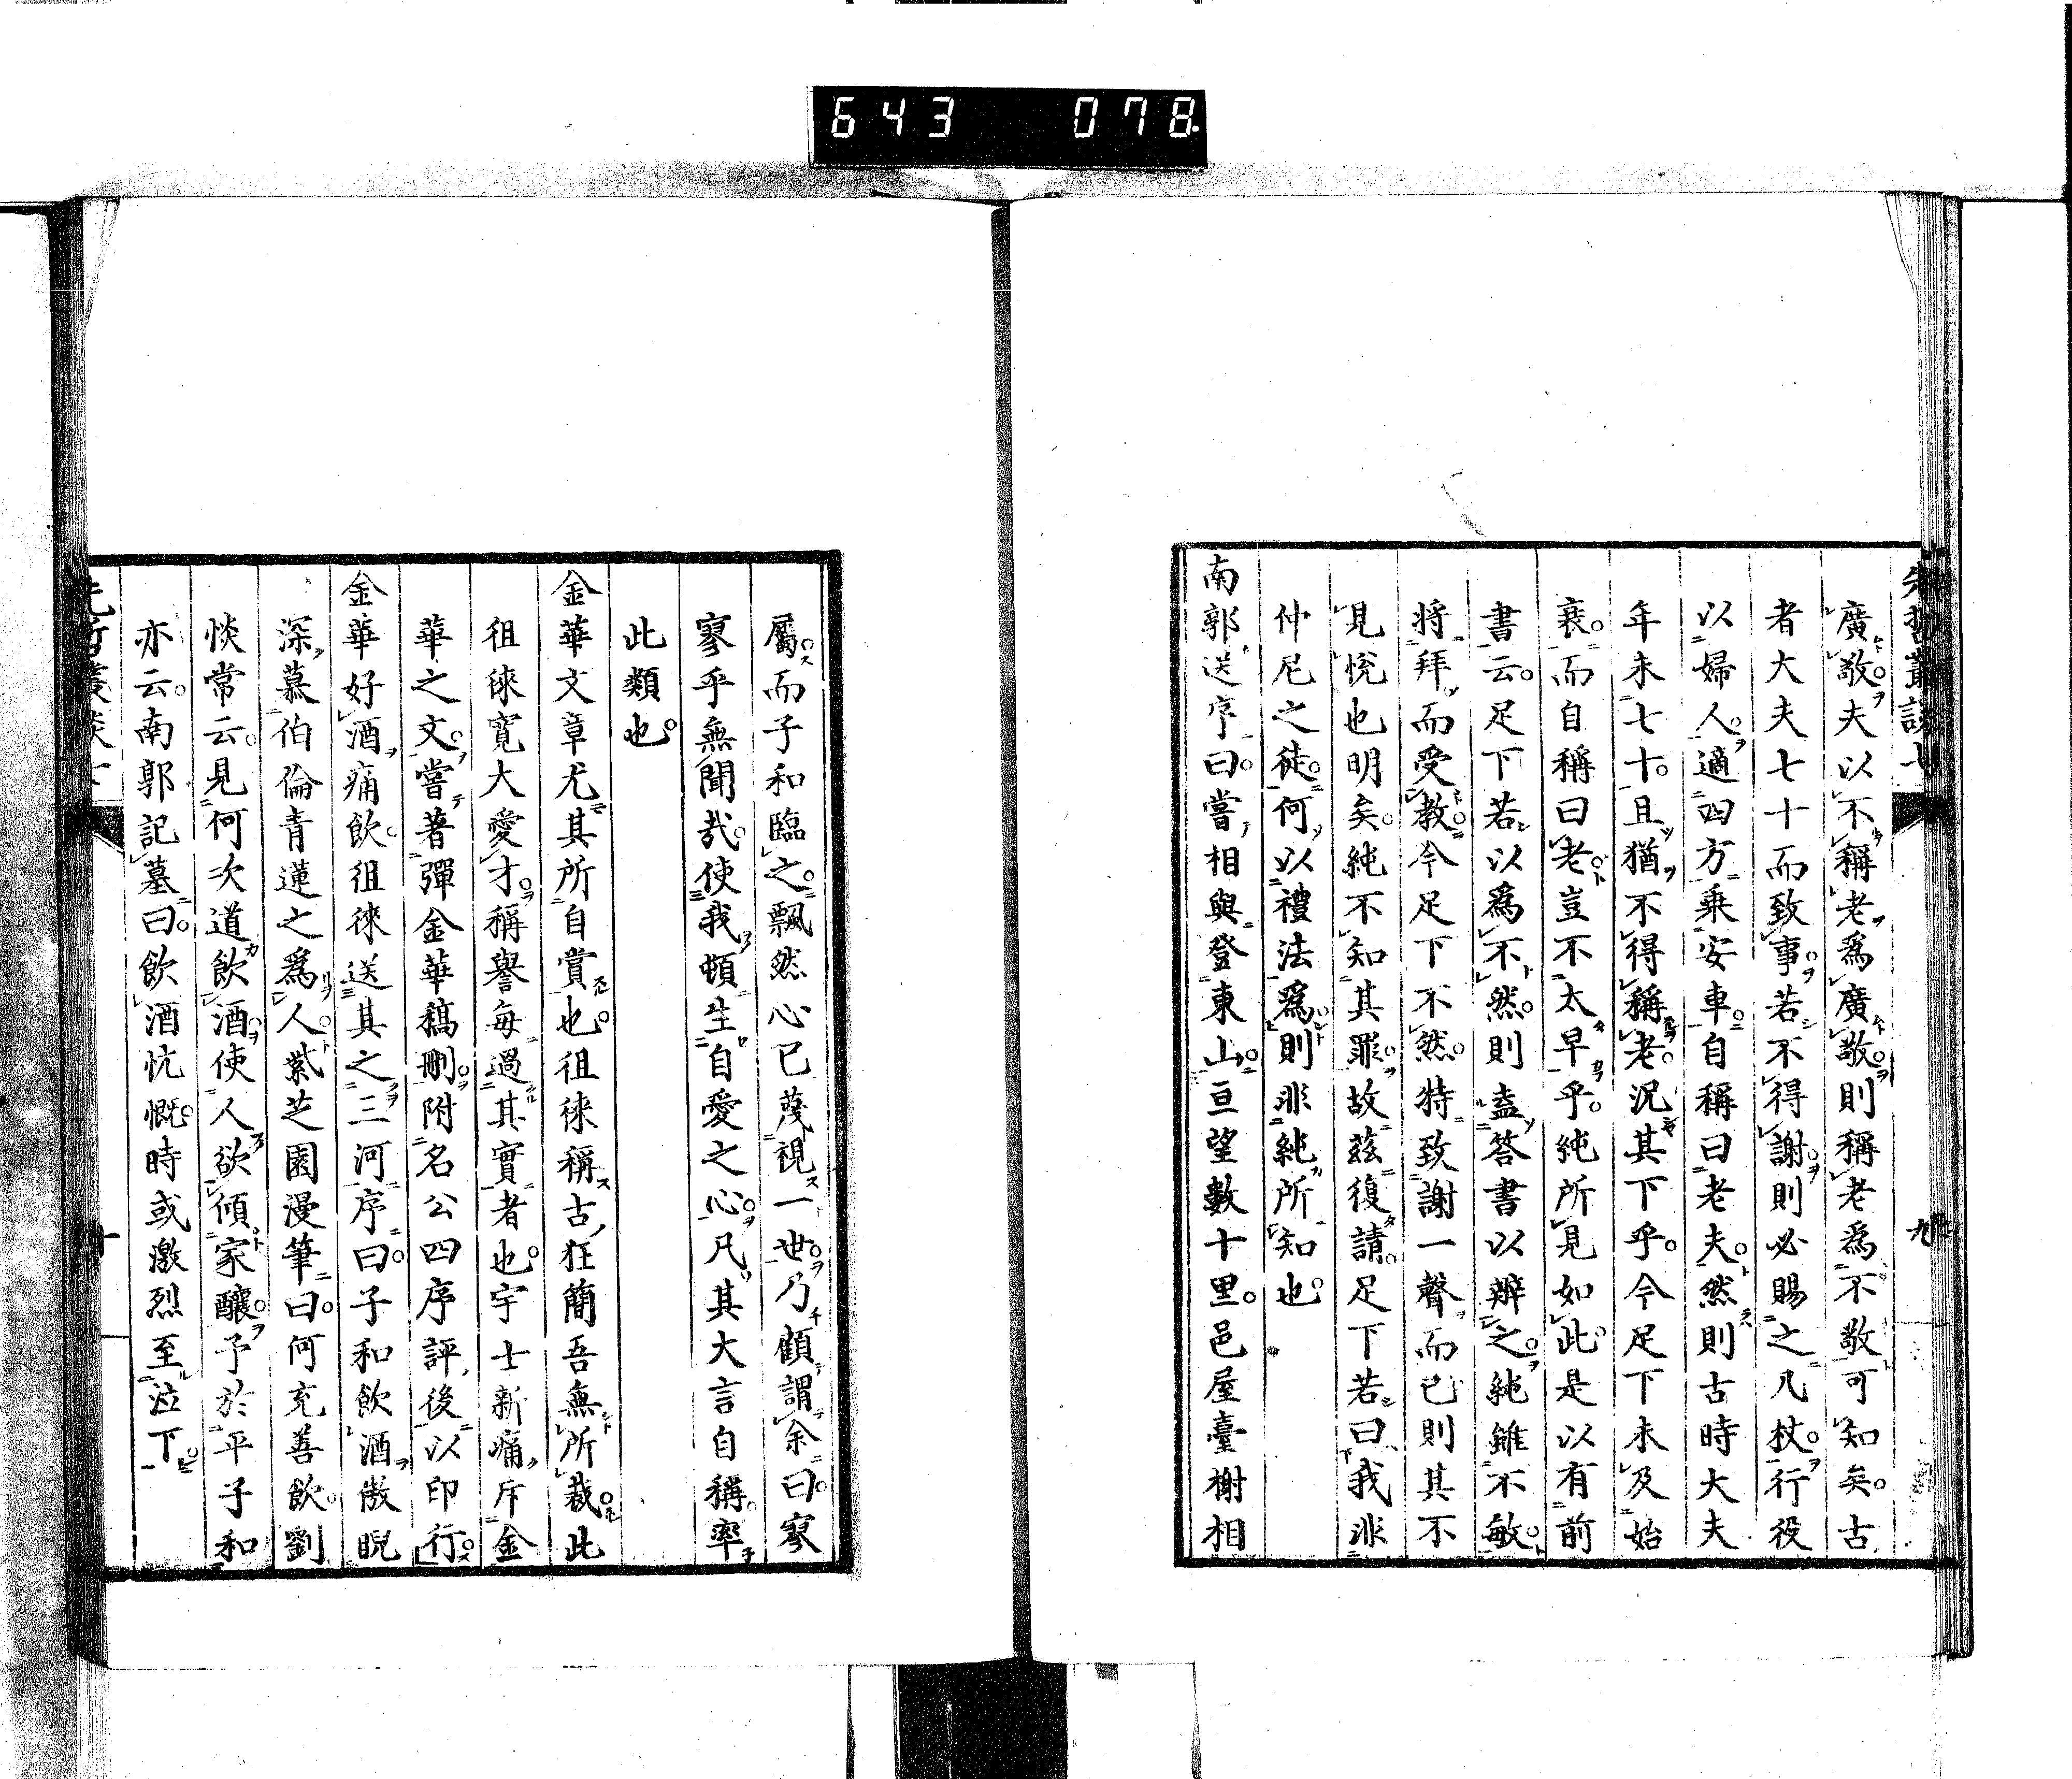 643 078
先哲叢談七 九
廣敬夫以不稱老爲廣敬則稱老爲不敬可知矣古
者大夫七十而致事若不得謝則必賜之几杖行役
以婦人適四方乘安車自稱曰老夫然則古時大夫
年未七十且猶不得稱老況其下乎今足下未及始
衰而自稱曰老豈不太早乎純所見如此是以有前
書云足下若以爲不然則盍答書以辨之純雖不敏
將拜而受教今足下不然特致謝一聲而已則其不
見悅也明矣純不知其罪故茲復請足下若曰我非
仲尼之徒何以禮法爲則非純所知也
南郭送序曰嘗相與登東山亘望數十里邑屋臺榭相
屬而子和臨之飄然心已蔑視一世乃顧謂余曰寥
寥乎無聞哉使我頓生自愛之心凡其大言自稱率
此類也
金華文章尤其所自賞也徂徠稱古狂簡吾無所裁此
徂徠寬大愛才稱譽每過其實者也宇士新痛斥金
華之文嘗著彈金華稿刪附名公四序評後以印行
金華好酒痛飲徂徠送其之三河序曰子和飲酒傲睨
深慕伯倫青蓮之爲人紫芝園漫筆曰何充善飲劉
惔常云見何次道飲酒使人欲傾家釀予於平子和
亦云南郭記墓曰飲酒忼慨時或激烈至泣下